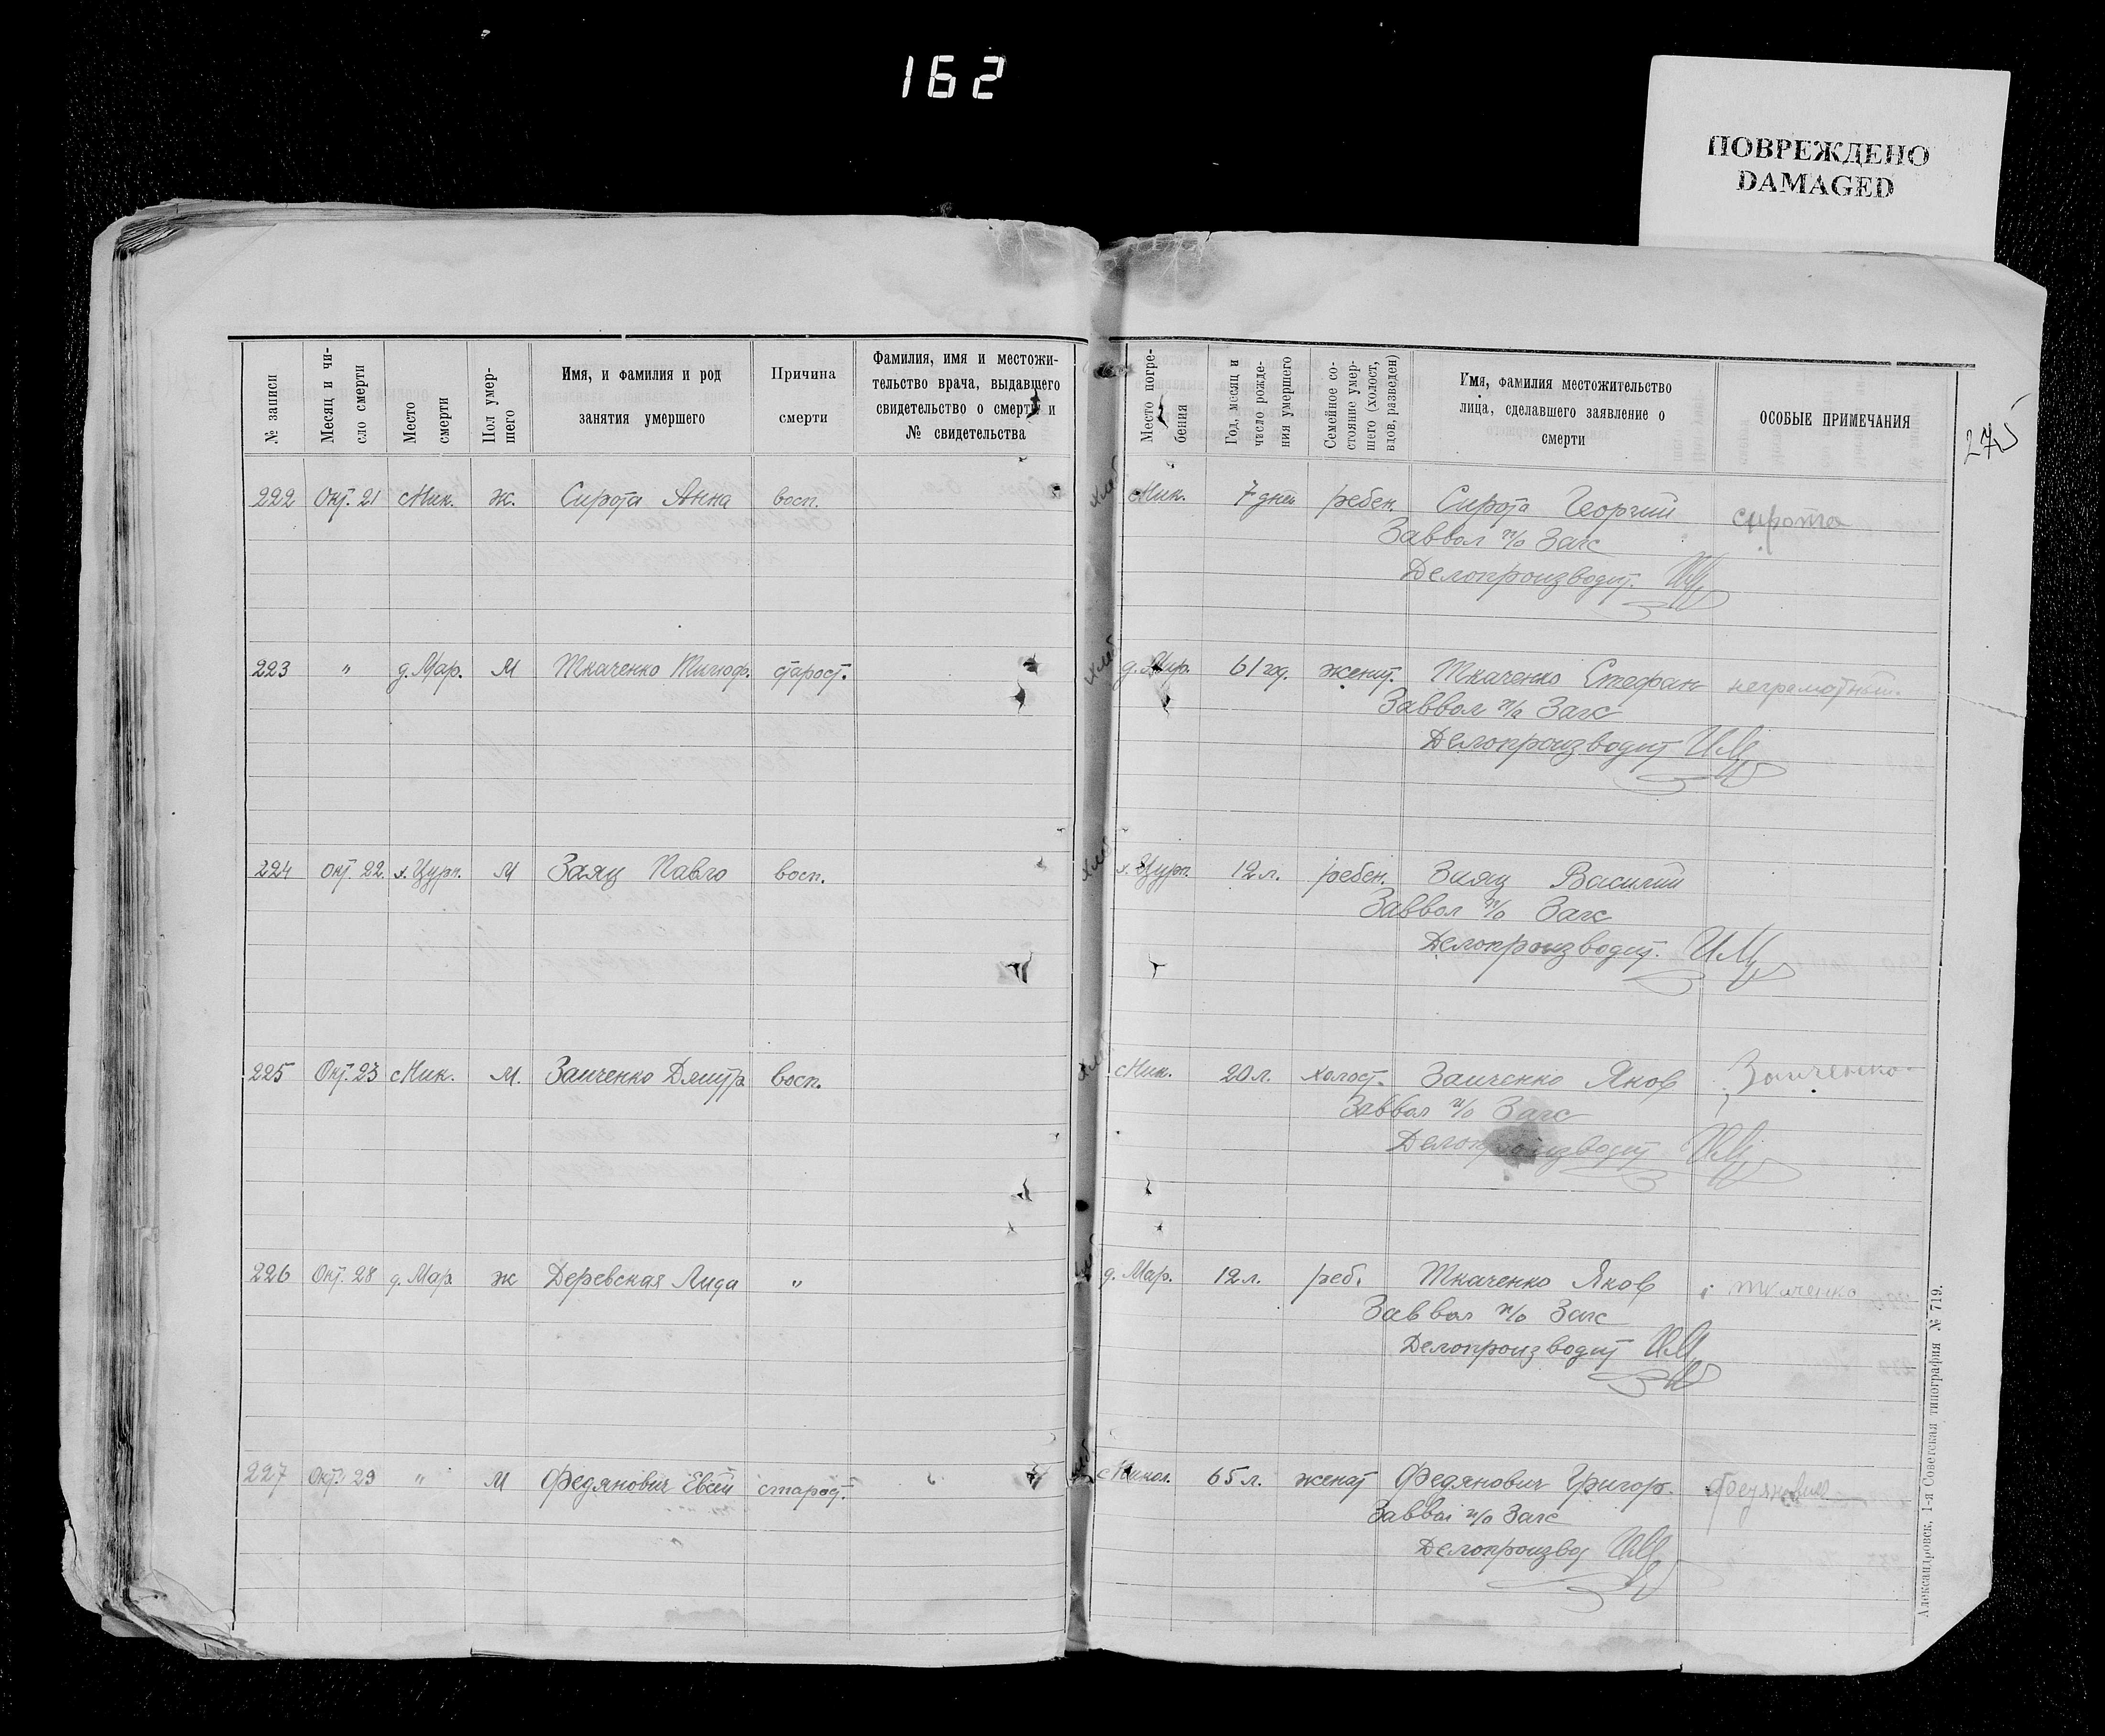 162
ПОВРЕЖДЕНО
DAMAGED
275
№ записи
Месяц и чи-
сло смерти
Место
смерти
Пол умер-
шего
Имя, и фамилия и род
занятия умершего
Причина
смерти
Фамилия, имя и местожи-
тельство врача, выдавшего
свидетельство о смерти и
№ свидетельства
Место погре-
бения
Год, месяц и
число рожде-
ния умершего
Семейное со-
стояние умер-
шего (холост,
вдов, разведен)
Имя, фамилия местожительство
лица, сделавшего заявление о
смерти
ОСОБЫЕ ПРИМЕЧАНИЯ
222 Окт. 21 с Ник. ж. Сирота Анна восп. с Ник. 7 дней ребен. Сирота Георгий сирота
Заввол п/о Загс
Делопроизводит.
223 " д. Мар. М Ткаченко Тимоф. старост. д. Мар. 61 год. женит. Ткаченко Стефан неграмотный.
Заввол п/о Загс
Делопроизводит
224 Окт. 22. х. Цурп. М Заяц Павло восп. х. Цурп. 12 л. ребен. Заяц Василий
Заввол п/о Загс
Делопроизводит.
225 Окт. 23 с Ник. М. Заиченко Дмитр. восп. с Ник. 20 л. холост. Заиченко Яков Заиченко
Заввол п/о Загс
Делопроизводит
226 Окт. 28 д. Мар. ж Деревская Лида " д. Мар. 12 л. реб. Ткаченко Яков Ткаченко
Заввол п/о Загс
Делопроизводит
227 Окт. 29 " М Федянович Евсей старост. с Никол. 65 л. женат Федянович Григор. Федянович
Заввол п/о Загс
Делопроизвод
Александровск, 1-я Советская типография № 719.